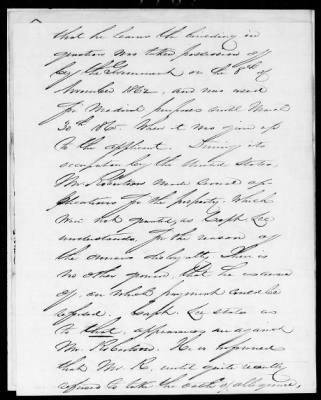 that he learns the building in
question was taken possession of
by the Government on the 8th of
November 1862, and was used
for Medical purposes until March
30th 1865. When it was given up
to the applicant. During its
occupation by the United States
Mr. Robertson made several ap-
plications for the property, which
were not granted, as Capt. Lee
understands, for the reason of
the owners disloyalty. There is
no other ground, that he is aware
of, on which payment could be
refused. Capt. Lee states as
to that, appearances are against
Mr. Robertson. He is informed
that Mr. R. until quite recently
refused to take the oath of allegiance,